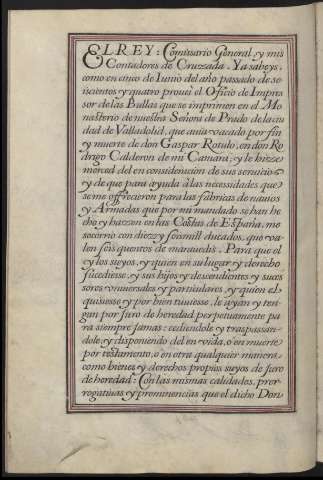 EL REY: Comissario General, y mis
Contadores de Cruzzada. Ya sabeys,
como en cinco de Iunio del año passado de se-
iscientos y quatro proueì el Oficio de Impres-
sor de las Bullas que se imprimen en el Mo-
nasterio de nuestra Señora de Prado de la ciu-
dad de Valladolid, que auia vacado por fin
y muerte de don Gaspar Rotulo, en don Ro-
drigo Calderon de mi Camara; y le hizze
merced del en consideración de sus seruicios
y de que para ayuda à las necessidades que
se me offrecieron para las fabricas de nauios
y Armadas que por mi mandado se han he-
cho y hazzen en las Costas de España, me
socorrio con diezz y seismill ducados, que va-
len seis quentos de marauedis. Para que el
y los suyos, y quien en su lugar y derecho
sucediesse, y sus hijos y descendientes y suces-
sores vniuersales y particulares, y quien el
quisiesse y por bien tuuiesse, le ayan y ten-
gan por juro de heredad perpetuamente pa-
ra siempre jamas: cediendole y traspassan-
dole y disponiendo del en vida, o en muerte
por testamento, o en otra qualquier manera,
como bienes y derechos propios suyos de juro
de heredad: Con las mismas calidades, prer-
rogatiuas y prominencias que el dicho Don